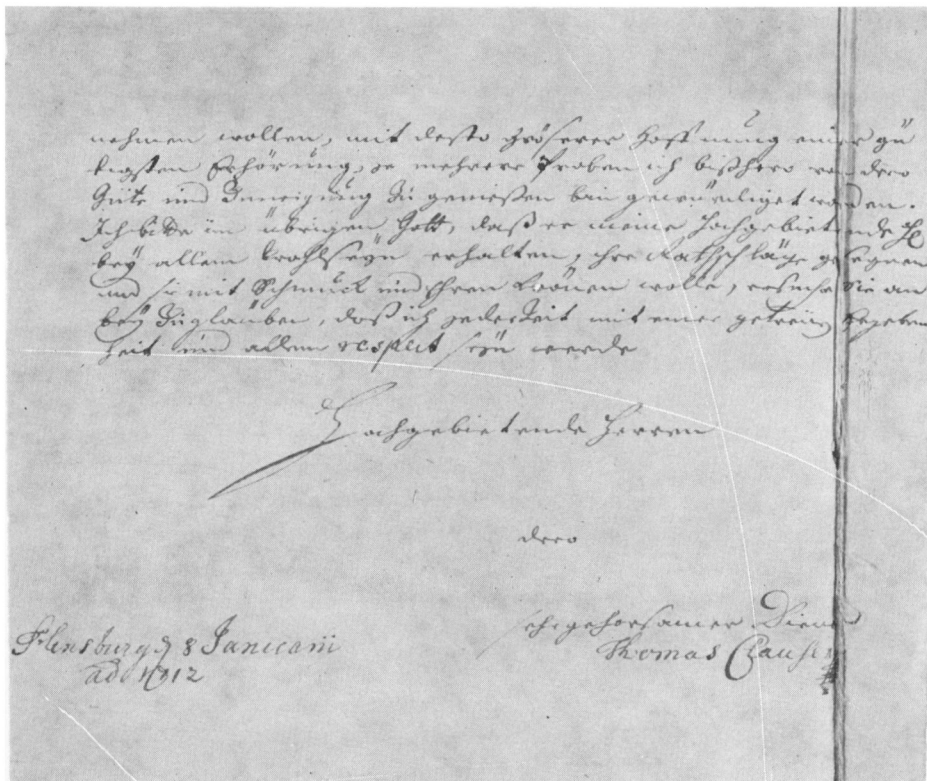 nehmen wollen, mit desto größerer Hoffnung einer gü
tigsten Erhörung, je mehrere Proben ich bißhero von dero
Güte und Zuneigung zu genießen bin gewürdiget worden.
Ich bitte im übrigen Gott, daß er meine Hochgebietende
bey allem wohlseyn erhalten, ihre Rathschläge gesegnen
und sie mit Schmuck und Ehren krönen wolle, ersuche sie an
bey zu glauben, daß ich jederzeit mit einer getreuen Ergeben
heit und allem respect seyn werde
Hochgebietende Herren
dero
gehorsamer Diener
Flensburg d 8 Januarii
ao 1712
Thomas Clausen